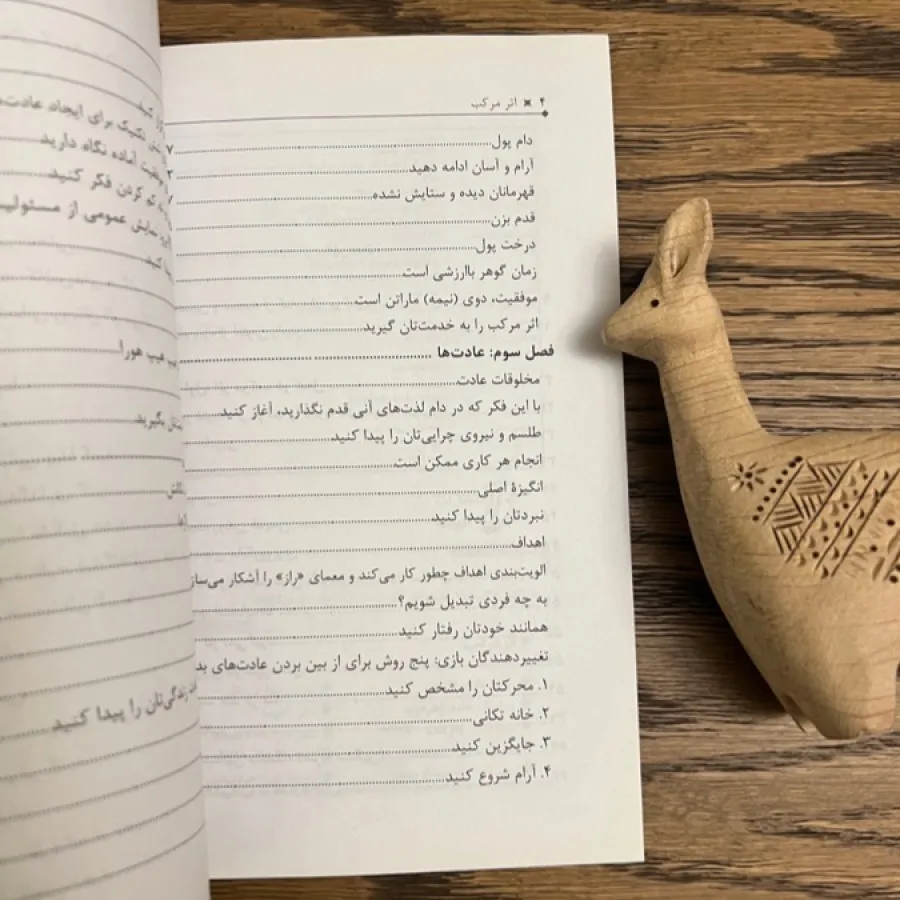 ۴ ✖ اثر مرکب
دام پول
آرام و آسان ادامه دهید
قهرمانان دیده و ستایش نشده
قدم بزن
درخت پول
زمان گوهر باارزشی است
موفقیت، دوی (نیمه) ماراتن است
اثر مرکب را به خدمت‌تان گیرید
فصل سوم: عادت‌ها
مخلوقات عادت
با این فکر که در دام لذت‌های آنی قدم نگذارید، آغاز کنید
طلسم و نیروی چرایی‌تان را پیدا کنید
انجام هر کاری ممکن است
انگیزهٔ اصلی
نبردتان را پیدا کنید
اهداف
الویت‌بندی اهداف چطور کار می‌کند و معمای «راز» را آشکار می‌ساز
به چه فردی تبدیل شویم؟
همانند خودتان رفتار کنید
تغییردهندگان بازی: پنج روش برای از بین بردن عادت‌های بد
۱. محرکتان را مشخص کنید
۲. خانه تکانی
۳. جایگزین کنید
۴. آرام شروع کنید
تکنیک برای ایجاد عادت
موفقیت آماده نگاه دارید
کم کردن فکر کنید
نمایش عمومی از مسئولیت
هیپ هورا
بگیرید
زندگی‌تان را پیدا کنید